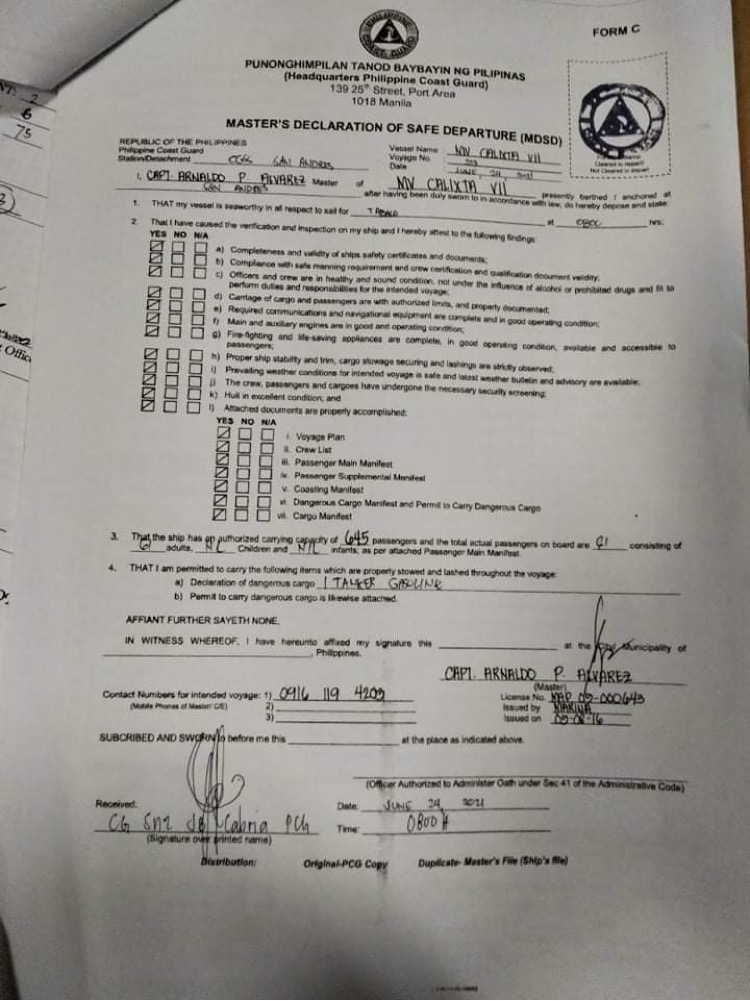 FORM C
PUNONGHIMPILAN TANOD BAYBAYIN NG PILIPINAS
(Headquarters Philippine Coast Guard)
139 25th Street, Port Area
1018 Manila
MASTER'S DECLARATION OF SAFE DEPARTURE (MDSD)
REPUBLIC OF THE PHILIPPINES
Philippine Coast Guard
Station/Detachment CGS SAN ANDRES
Vessel Name: MV CALIXTA VII
Voyage No.
Date JUNE, 24, 2021
I, CAPT. ARNALDO P. ALVAREZ Master of MV CALIXTA VII presently berthed / anchored at
SAN ANDRES after having been duly sworn to in accordance with law, do hereby depose and state:
1. THAT my vessel is seaworthy in all respect to sail for TABACO at 0800 hrs.
2. That I have caused the verification and inspection on my ship and I hereby attest to the following findings:
YES NO N/A
a) Completeness and validity of ships safety certificates and documents;
b) Compliance with safe manning requirement and crew certification and qualification document validity;
c) Officers and crew are in healthy and sound condition, not under the influence of alcohol or prohibited drugs and fit to
perform duties and responsibilities for the intended voyage;
d) Carriage of cargo and passengers are with authorized limits, and properly documented;
e) Required communications and navigational equipment are complete and in good operating condition;
f) Main and auxiliary engines are in good and operating condition;
g) Fire-fighting and life-saving appliances are complete, in good operating condition, available and accessible to
passengers;
h) Proper ship stability and trim, cargo stowage securing and lashings are strictly observed;
i) Prevailing weather conditions for intended voyage is safe and latest weather bulletin and advisory are available;
j) The crew, passengers and cargoes have undergone the necessary security screening;
k) Hull in excellent condition; and
l) Attached documents are properly accomplished:
YES NO N/A
i. Voyage Plan
ii. Crew List
iii. Passenger Main Manifest
iv. Passenger Supplemental Manifest
v. Coasting Manifest
vi. Dangerous Cargo Manifest and Permit to Carry Dangerous Cargo
vii. Cargo Manifest
3. That the ship has an authorized carrying capacity of 645 passengers and the total actual passengers on board are 61 consisting of
61 adults, NIL Children and NIL infants; as per attached Passenger Main Manifest.
4. THAT I am permitted to carry the following items which are properly stowed and lashed throughout the voyage:
a) Declaration of dangerous cargo 1 TANKER GASOLINE
b) Permit to carry dangerous cargo is likewise attached.
AFFIANT FURTHER SAYETH NONE.
IN WITNESS WHEREOF, I have hereunto affixed my signature this at the City/Municipality of
, Philippines.
CAPT. ARNALDO P. ALVAREZ
(Master)
Contact Numbers for intended voyage: 1) 0916 119 4203
(Mobile Phones of Master/ C/E) 2)
3)
License No. MAP 09-000643
Issued by MARINA
Issued on 09-08-16
SUBCRIBED AND SWORN to before me this at the place as indicated above.
(Officer Authorized to Administer Oath under Sec 41 of the Administrative Code)
Received:
CG SN2 JB Cabria PCG
(Signature over printed name)
Date: JUNE 24, 2021
Time: 0800H
Distribution: Original-PCG Copy Duplicate- Master's File (Ship's file)